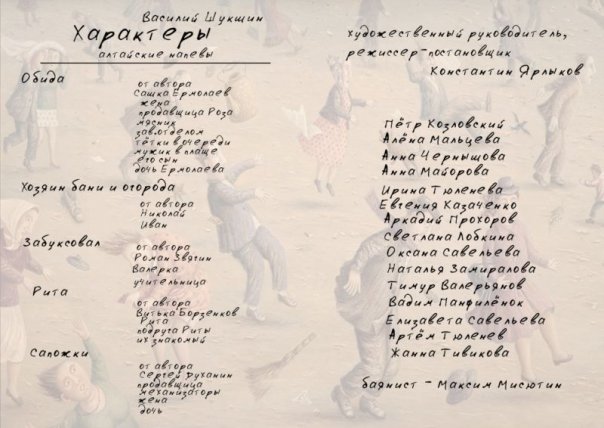 Василий Шукшин
Характеры
алтайские напевы
Обида
от автора
Сашка Ермолаев
жена
продавщица Роза
мясник
зав.отделом
тётки в очереди
мужик в плаще
его сын
дочь Ермолаева
Хозяин бани и огорода
от автора
Николай
Иван
Забуксовал
от автора
Роман Звягин
Валерка
учительница
Рита
от автора
Витька Борзенков
Рита
подруга Риты
их знакомый
Сапожки
от автора
Сергей Духанин
продавщица
механизаторы
жена
дочь
художественный руководитель,
режиссер-постановщик
Константин Ярлыков
Пётр Козловский
Алёна Мальцева
Анна Чернышова
Анна Майорова
Ирина Тюленева
Евгения Казаченко
Аркадий Прохоров
Светлана Лобкина
Оксана Савельева
Наталья Замиралова
Тимур Валерьянов
Вадим Панфилёнок
Елизавета Савельева
Артём Тюленев
Жанна Тивикова
баянист - Максим Мисютин